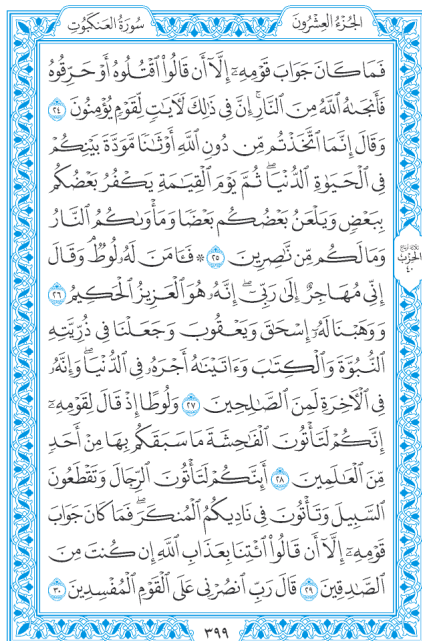 الجُزْءُ العِشْرُونَ
سُورَةُ العَنكَبُوتِ
فَمَا كَانَ جَوَابَ قَوْمِهِۦٓ إِلَّآ أَن قَالُوا۟ ٱقْتُلُوهُ أَوْ حَرِّقُوهُ
فَأَنجَىٰهُ ٱللَّهُ مِنَ ٱلنَّارِ ۚ إِنَّ فِى ذَٰلِكَ لَـَٔايَـٰتٍ لِّقَوْمٍ يُؤْمِنُونَ ٢٤
وَقَالَ إِنَّمَا ٱتَّخَذْتُم مِّن دُونِ ٱللَّهِ أَوْثَـٰنًا مَّوَدَّةَ بَيْنِكُمْ
فِى ٱلْحَيَوٰةِ ٱلدُّنْيَا ۖ ثُمَّ يَوْمَ ٱلْقِيَـٰمَةِ يَكْفُرُ بَعْضُكُم
بِبَعْضٍ وَيَلْعَنُ بَعْضُكُم بَعْضًا وَمَأْوَىٰكُمُ ٱلنَّارُ
وَمَا لَكُم مِّن نَّـٰصِرِينَ ٢٥ ۞ فَـَٔامَنَ لَهُۥ لُوطٌ ۘ وَقَالَ
إِنِّى مُهَاجِرٌ إِلَىٰ رَبِّىٓ ۖ إِنَّهُۥ هُوَ ٱلْعَزِيزُ ٱلْحَكِيمُ ٢٦
وَوَهَبْنَا لَهُۥٓ إِسْحَـٰقَ وَيَعْقُوبَ وَجَعَلْنَا فِى ذُرِّيَّتِهِ
ٱلنُّبُوَّةَ وَٱلْكِتَـٰبَ وَءَاتَيْنَـٰهُ أَجْرَهُۥ فِى ٱلدُّنْيَا ۖ وَإِنَّهُۥ
فِى ٱلْـَٔاخِرَةِ لَمِنَ ٱلصَّـٰلِحِينَ ٢٧ وَلُوطًا إِذْ قَالَ لِقَوْمِهِۦٓ
إِنَّكُمْ لَتَأْتُونَ ٱلْفَـٰحِشَةَ مَا سَبَقَكُم بِهَا مِنْ أَحَدٍ
مِّنَ ٱلْعَـٰلَمِينَ ٢٨ أَئِنَّكُمْ لَتَأْتُونَ ٱلرِّجَالَ وَتَقْطَعُونَ
ٱلسَّبِيلَ وَتَأْتُونَ فِى نَادِيكُمُ ٱلْمُنكَرَ ۖ فَمَا كَانَ جَوَابَ
قَوْمِهِۦٓ إِلَّآ أَن قَالُوا۟ ٱئْتِنَا بِعَذَابِ ٱللَّهِ إِن كُنتَ مِنَ
ٱلصَّـٰدِقِينَ ٢٩ قَالَ رَبِّ ٱنصُرْنِى عَلَى ٱلْقَوْمِ ٱلْمُفْسِدِينَ ٣٠
الحِزْبُ
٤٠
٣٩٩